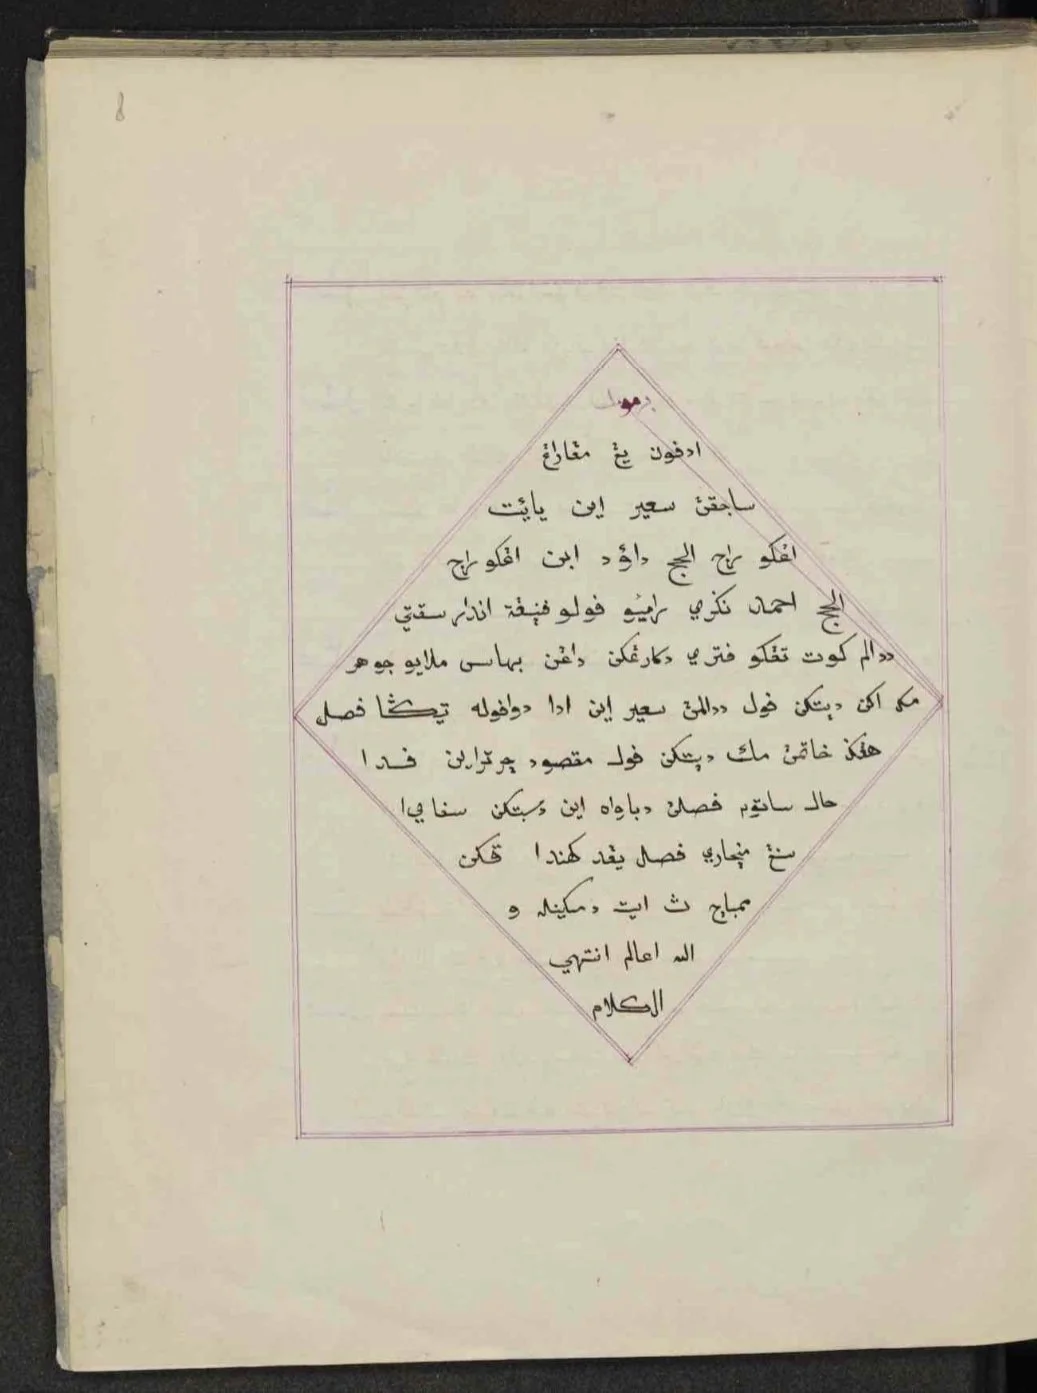 برمول
ادفون يڠ مڠارڠ
ساجقڽ سعير اين يايت
اڠكو راج الحج داؤد ابن اڠكو راج
الحج احمد نكري رامينو فولو فنيڠة اندر سقتي
ددالم كوت تڠكو فتري دكارڠكن داڠن بهاس ملايو جوهر
مك اكن دبتكن فول ددالمڽ سعير اين ادا دوافوله تيݢا فصل
هڠݢ خاتمڽ مك دبتكن فول مقصود چرتراين فدا
حال ساتوم فصلڽ دباواه اين دسبتكن سفاي
سنڠ منچاري فصل يڠد كهندا قكن
ممباچ ث ايت دمكينله و
الله اعالم انتهي
الكلام